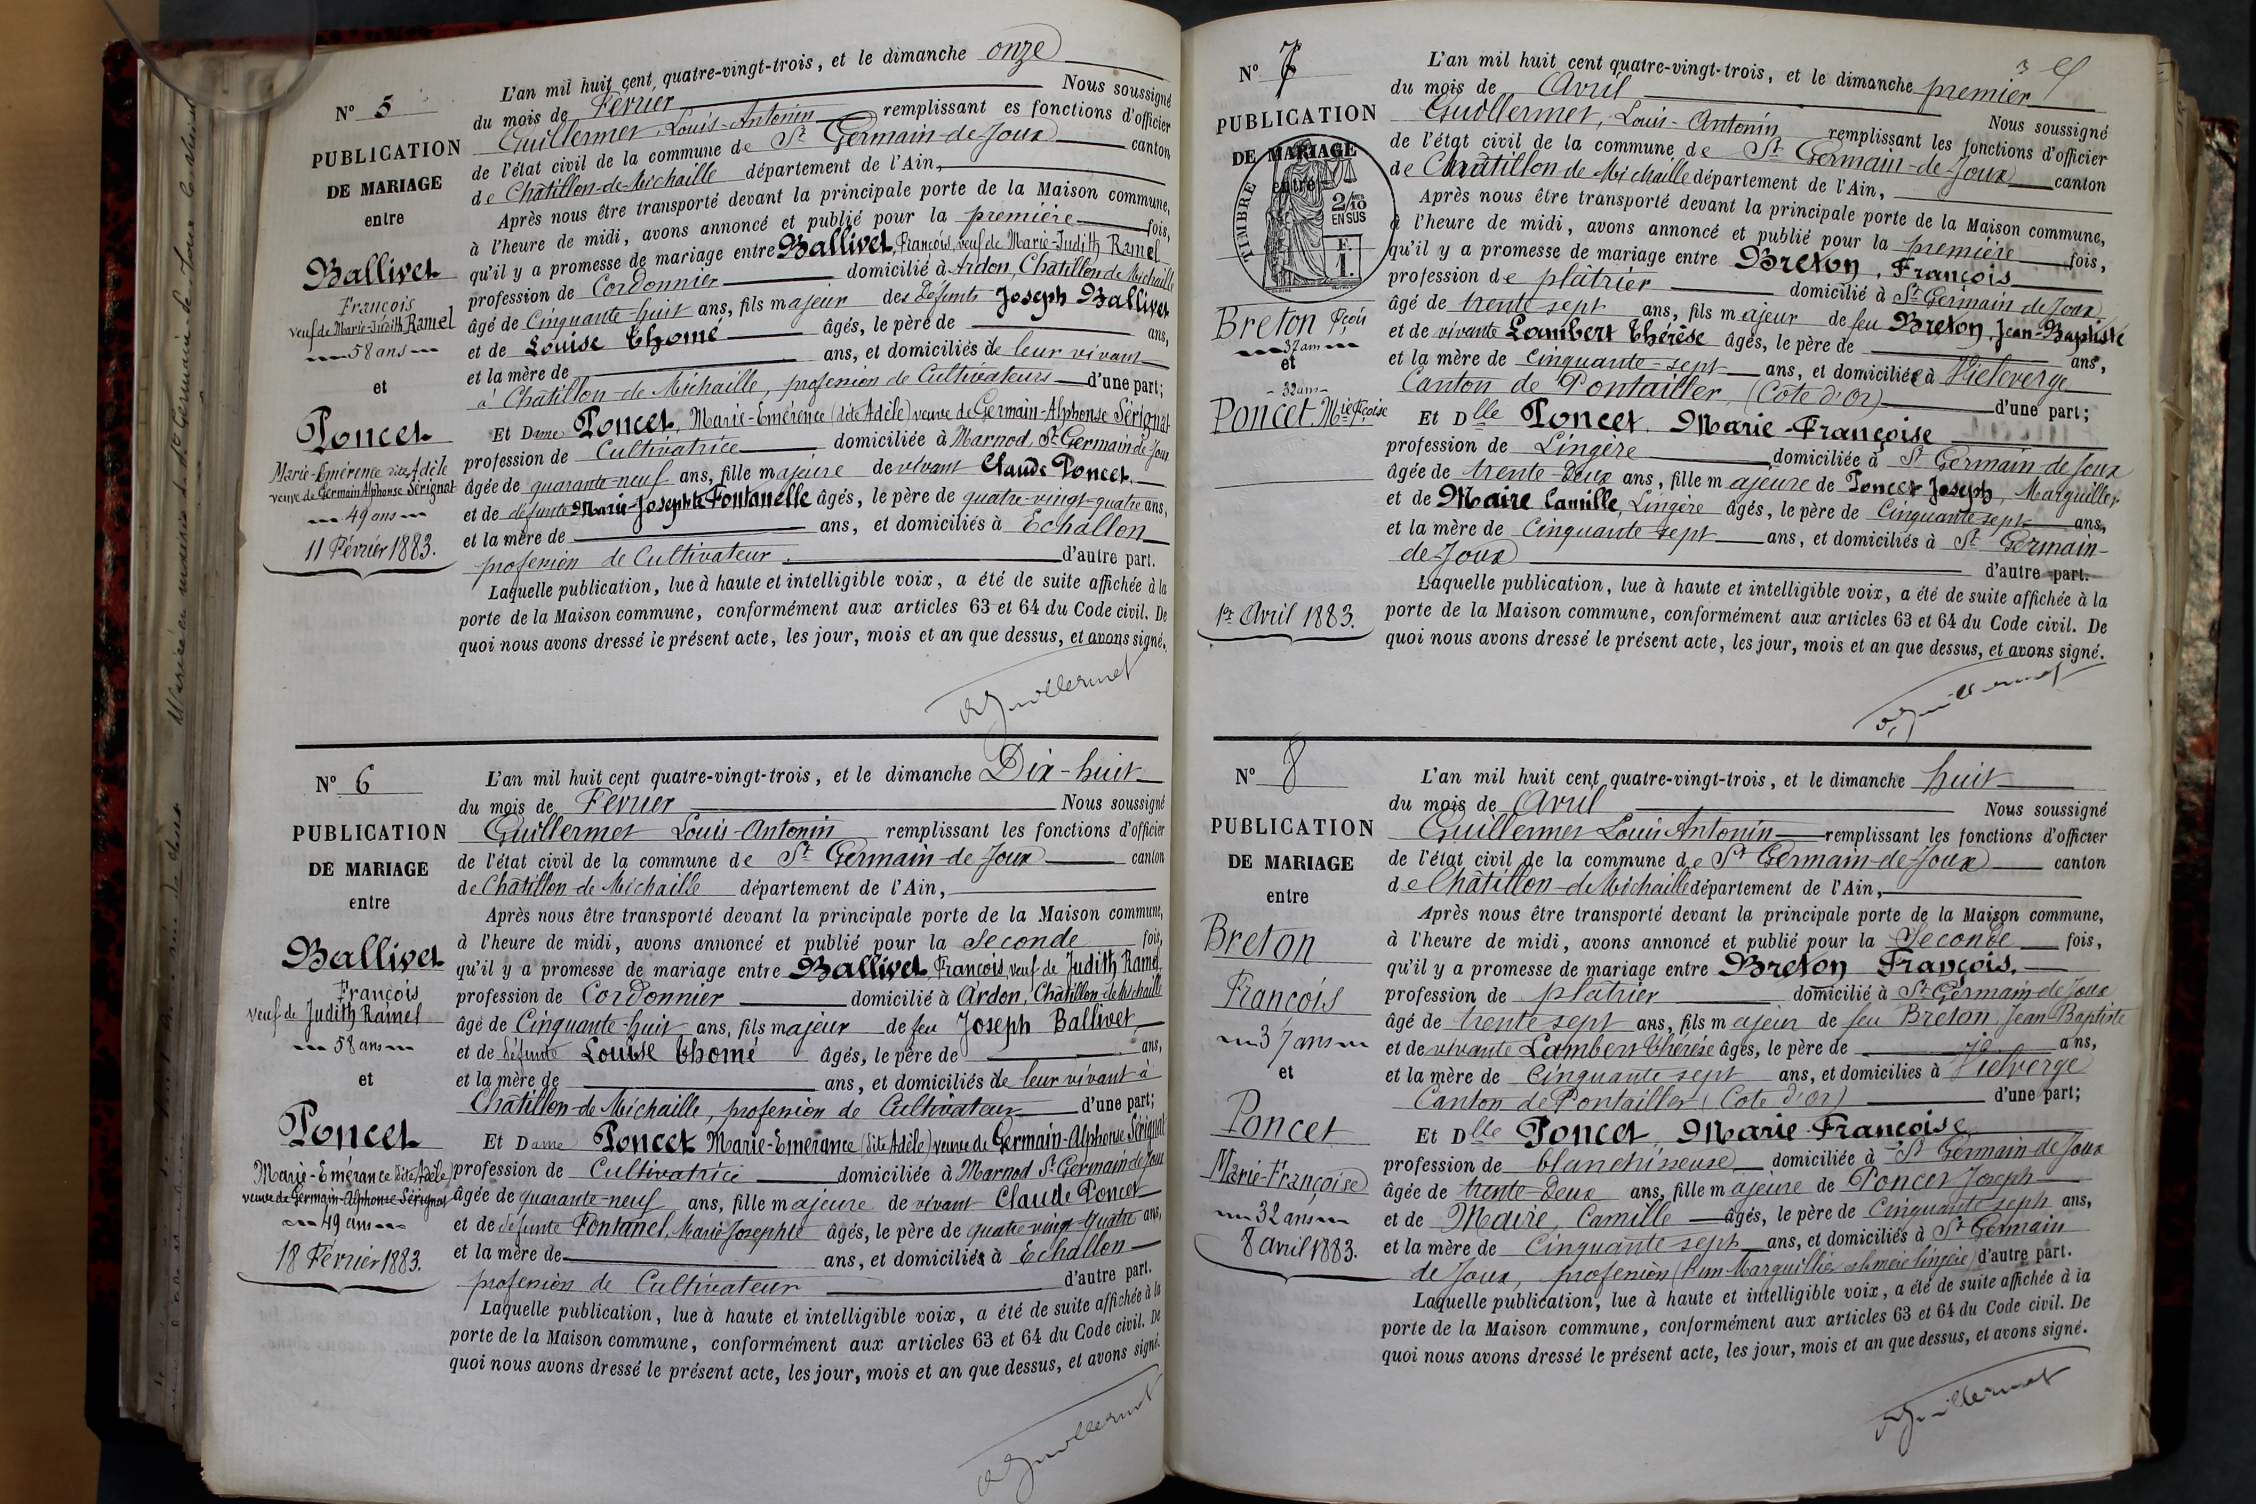 N° 5
PUBLICATION
DE MARIAGE
entre
Ballivet
François
veuf de Marie-Judith Ramel
58 ans
et
Poncet
Marie-Emérence dite Adèle
veuve de Germain Alphonse Sérignat
49 ans
11 Février 1883.
L'an mil huit cent quatre-vingt-trois, et le dimanche onze
du mois de Février Nous soussigné
Guillermet Louis-Antonin remplissant es fonctions d'officier
de l'état civil de la commune de St Germain-de-Joux canton
de Châtillon-de-Michaille département de l'Ain,
Après nous être transporté devant la principale porte de la Maison commune,
à l'heure de midi, avons annoncé et publié pour la première fois,
qu'il y a promesse de mariage entre Ballivet, François, veuf de Marie-Judith Ramel
profession de Cordonnier domicilié à Ardon, Châtillon de Michaille
âgé de Cinquante-huit ans, fils majeur des défunts Joseph Ballivet
et de Louise Thomé âgés, le père de ans,
et la mère de ans, et domiciliés de leur vivant
à Châtillon-de-Michaille, profession de Cultivateurs d'une part;
Et Dame Poncet, Marie-Emérence (dite Adèle) veuve de Germain-Alphonse Sérignat
profession de Cultivatrice domiciliée à Marnod, St Germain de Joux
âgée de quarante-neuf ans, fille majeure de vivant Claude Poncet.
et de défunte Marie-Josephte Fontanelle âgés, le père de quatre-vingt-quatre ans,
et la mère de ans, et domiciliés à Echallon
profession de Cultivateur d'autre part.
Laquelle publication, lue à haute et intelligible voix, a été de suite affichée à la
porte de la Maison commune, conformément aux articles 63 et 64 du Code civil. De
quoi nous avons dressé le présent acte, les jour, mois et an que dessus, et avons signé.
Guillermet
N° 6
PUBLICATION
DE MARIAGE
entre
Ballivet
François
veuf de Judith Ramel
58 ans
et
Poncet
Marie-Emérance dite Adèle
veuve de Germain-Alphonse Sérignat
49 ans
18 Février 1883.
L'an mil huit cent quatre-vingt-trois, et le dimanche Dix-huit
du mois de Février Nous soussigné
Guillermet Louis-Antonin remplissant les fonctions d'officier
de l'état civil de la commune de St Germain-de-Joux canton
de Châtillon-de-Michaille département de l'Ain,
Après nous être transporté devant la principale porte de la Maison commune,
à l'heure de midi, avons annoncé et publié pour la Seconde fois,
qu'il y a promesse de mariage entre Ballivet François, veuf de Judith Ramel
profession de Cordonnier domicilié à Ardon, Châtillon-de-Michaille
âgé de Cinquante-huit ans, fils majeur de feu Joseph Ballivet
et de défunte Louise Thomé âgés, le père de ans,
et la mère de ans, et domiciliés de leur vivant à
Châtillon-de-Michaille, profession de Cultivateur d'une part;
Et Dame Poncet Marie-Emerance (dite Adèle) veuve de Germain-Alphonse Sérignat
profession de Cultivatrice domiciliée à Marnod St Germain de Joux
âgée de quarante-neuf ans, fille majeure de vivant Claude Poncet
et de défunte Fontanel, Marie Josephte âgés, le père de quatre vingt quatre ans,
et la mère de ans, et domiciliés à Echallon
profession de Cultivateur d'autre part.
Laquelle publication, lue à haute et intelligible voix, a été de suite affichée à la
porte de la Maison commune, conformément aux articles 63 et 64 du Code civil. De
quoi nous avons dressé le présent acte, les jour, mois et an que dessus, et avons signé.
Guillermet
N° 7
PUBLICATION
DE MARIAGE
entre
TIMBRE
2/10
EN SUS
F.
1.
Breton Fçois
37 ans
et
32 ans
Poncet Mie Fçoise
1er Avril 1883.
3
L'an mil huit cent quatre-vingt-trois, et le dimanche premier
du mois de Avril Nous soussigné
Guillermet, Louis-Antonin remplissant les fonctions d'officier
de l'état civil de la commune de St Germain-de-Joux canton
de Châtillon de Michaille département de l'Ain,
Après nous être transporté devant la principale porte de la Maison commune,
à l'heure de midi, avons annoncé et publié pour la première fois,
qu'il y a promesse de mariage entre Breton, François
profession de plâtrier domicilié à St Germain de Joux
âgé de trente sept ans, fils majeur de feu Breton, Jean-Baptiste
et de vivante Lambert Thérèse âgés, le père de ans,
et la mère de Cinquante-sept ans, et domiciliée à Vieleverge
Canton de Pontailler, (Côte d'Or) d'une part;
Et Dlle Poncet, Marie-Françoise
profession de Lingère domiciliée à St Germain-de-Joux
âgée de trente-deux ans, fille majeure de Poncet Joseph, Marguiller
et de Maire Camille, Lingère âgés, le père de Cinquante sept ans,
et la mère de Cinquante-sept ans, et domiciliés à St Germain-
de-Joux d'autre part.
Laquelle publication, lue à haute et intelligible voix, a été de suite affichée à la
porte de la Maison commune, conformément aux articles 63 et 64 du Code civil. De
quoi nous avons dressé le présent acte, les jour, mois et an que dessus, et avons signé.
Guillermet
N° 8
PUBLICATION
DE MARIAGE
entre
Breton
François
37 ans
et
Poncet
Marie-Françoise
32 ans
8 avril 1883.
L'an mil huit cent quatre-vingt-trois, et le dimanche huit
du mois de Avril Nous soussigné
Guillermet Louis Antonin remplissant les fonctions d'officier
de l'état civil de la commune de St Germain-de-Joux canton
de Châtillon-de-Michaille département de l'Ain,
Après nous être transporté devant la principale porte de la Maison commune,
à l'heure de midi, avons annoncé et publié pour la Seconde fois,
qu'il y a promesse de mariage entre Breton François,
profession de plâtrier domicilié à St Germain-de-Joux
âgé de trente sept ans, fils majeur de feu Breton, Jean Baptiste
et de vivante Lambert Thérèse âgés, le père de ans,
et la mère de Cinquante sept ans, et domiciliés à Vielverge
Canton de Pontailler (Côte d'Or) d'une part;
Et Dlle Poncet, Marie-Françoise
profession de blanchisseuse domiciliée à St Germain-de-Joux
âgée de trente-deux ans, fille majeure de Poncet Joseph
et de Maire, Camille âgés, le père de Cinquante sept ans,
et la mère de Cinquante sept ans, et domiciliés à St Germain
de Joux, profession (l'un Marguillier et la mère lingère) d'autre part.
Laquelle publication, lue à haute et intelligible voix, a été de suite affichée à la
porte de la Maison commune, conformément aux articles 63 et 64 du Code civil. De
quoi nous avons dressé le présent acte, les jour, mois et an que dessus, et avons signé.
Guillermet